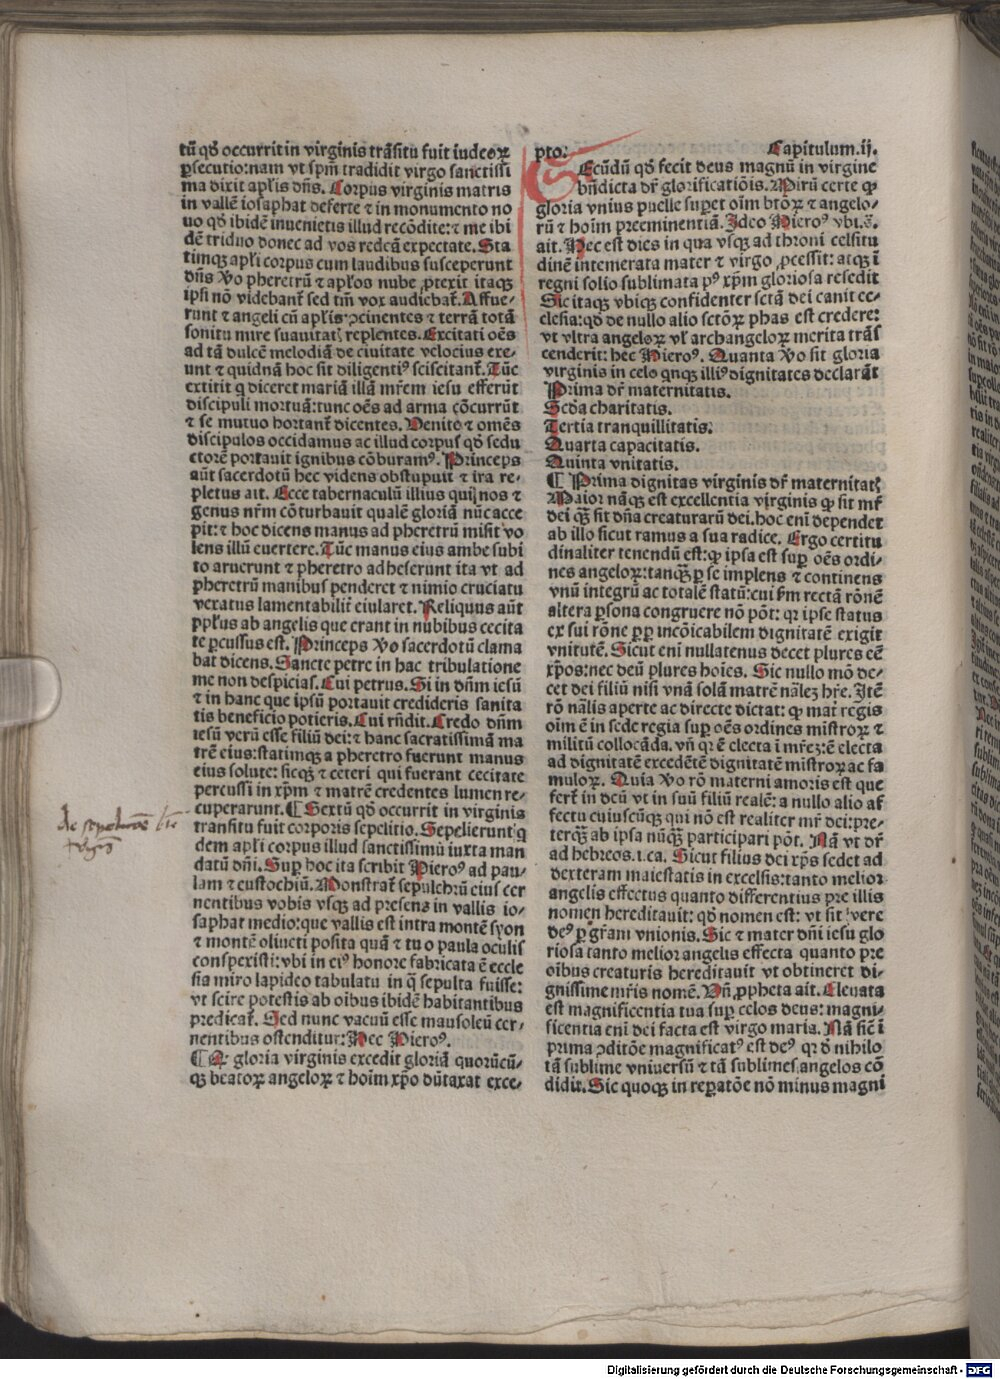 tū qď occurrit in virginis trāsitu fuit iudeoꝝ
ꝑsecutio: nam vt spm̄ tradidit virgo sanctissi
ma dixit apl̄is dn̄s. Corpus virginis matris
in vallē iosaphat deferte ⁊ in monumento no
uo qď ibidē inuenietis illud recōdite: ⁊ me ibi
dē triduo donec ad vos redeā expectate. Sta
timqꝫ apl̄i corpus cum laudibus susceperunt
dn̄s ꝟo pheretrū ⁊ apl̄os nube ꝓtexit itaqꝫ
ipsi nō videbant᷑ sed tm̄ vox audiebat᷑. Affue-
runt ⁊ angeli cū apl̄is ꝯcinentes ⁊ terrā totā
sonitu mire suauitatꝭ replentes. Excitati oēs
ad tā dulcē melodiā de ciuitate velocius exe-
unt ⁊ quidnā hoc sit diligentiꝰ sciscitant᷑. Tūc
extitit q diceret mariā illā mr̄em iesu efferūt
discipuli mortuā: tunc oēs ad arma cōcurrūt
⁊ se mutuo hortant᷑ dicentes. Venite ⁊ omēs
discipulos occidamus ac illud corpus qď sedu
ctorē portauit ignibus cōburamꝰ. Princeps
aūt sacerdotū hec videns obstupuit ⁊ ira re-
pletus ait. Ecce tabernaculū illius qui nos ⁊
genus nr̄m cōturbauit qualē gloriā nūc acce
pit: ⁊ hoc dicens manus ad pheretrū misit vo
lens illū euertere. Tūc manus eius ambe subi
to aruerunt ⁊ pheretro adheserunt ita vt ad
pheretrū manibus penderet ⁊ nimio cruciatu
vexatus lamentabilit᷑ eiularet. Reliquus aūt
ppl̄us ab angelis que erant in nubibus cecita
te ꝑcussus est. Princeps ꝟo sacerdotū clama
bat dicens. Sancte petre in hac tribulatione
me non despicias. Cui petrus. Si in dn̄m iesū
⁊ in hanc que ipsū portauit credideris sanita
tis beneficio potieris. Cui rn̄dit. Credo dn̄m
iesū verū esse filiū dei: ⁊ hanc sacratissimā ma
trē eius: statimqꝫ a pheretro fuerunt manus
eius solute: sicqꝫ ⁊ ceteri qui fuerant cecitate
percussi in xp̄m ⁊ matrē credentes lumen re-
cuperarunt. ¶ Sextū qď occurrit in virginis
transitu fuit corporis sepelitio. Sepelierunt q
dem apl̄i corpus illud sanctissimū iuxta man
datū dn̄i. Suꝑ hoc ita scribit Hieroꝰ ad pau-
lam ⁊ eustochiū. Monstrat᷑ sepulchrū eius cer
nentibus vobis vsqꝫ ad presens in vallis io-
saphat medio: que vallis est intra montē syon
⁊ montē oliueti posita quā ⁊ tu o paula oculis
conspexisti: vbi in eiꝰ honore fabricata ē eccle
sia miro lapideo tabulatu in q̄ sepulta fuisse:
vt scire potestis ab oībus ibidē habitantibus
predicat᷑. Sed nunc vacuū esse mausoleū cer-
nentibus ostenditur: Hec Hieroꝰ.
¶ Qꝫ gloria virginis excedit gloriā quorūcū-
qꝫ beatoꝝ angeloꝝ ⁊ hoīm xp̄o dūtaxat exce-
pto. Capitulum. ij.
SEcūdū qď fecit deus magnū in virgine
bn̄dicta dr̄ glorificatiōis. Mirū certe ꝙ
gloria vnius puelle suꝑet oīm btōꝝ ⁊ angelo-
rū ⁊ hoīm preeminentiā. Ideo Hieroꝰ vbi. s̄.
ait. Hec est dies in qua vsqꝫ ad throni celsitu
dinē intemerata mater ⁊ virgo ꝓcessit: atqꝫ ī
regni solio sublimata pꝰ xp̄m gloriosa resedit
Sic itaqꝫ vbiqꝫ confidenter sctā dei canit ec-
clesia: qď de nullo alio sctōꝝ phas est credere:
vt vltra angeloꝝ vl̓ archangeloꝝ merita trās
cenderit: hec Hieroꝰ. Quanta ꝟo sit gloria
virginis in celo qnqꝫ illiꝰ dignitates declarāt
Prima dr̄ maternitatis.
Scďa charitatis.
Tertia tranquillitatis.
Quarta capacitatis.
Quinta vnitatis.
¶ Prima dignitas virginis dr̄ maternitatꝭ
Maior nāqꝫ est excellentia virginis ꝙ sit mr̄
dei qꝫ̄ sit dn̄a creaturarū dei. hoc enī dependet
ab illo sicut ramus a sua radice. Ergo certitu
dinaliter tenendū est: ꝙ ipsa est suꝑ oēs ordi-
nes angeloꝝ: tanqꝫ̄ ꝑ se implens ⁊ continens
vnū integrū ac totalē statū: cui ẜm rectā rōnē
altera ꝑsona congruere nō pōt: qꝛ ipse status
ex sui rōne ꝓpꝑ incōicabilem dignitatē exigit
vnitutē. Sicut eni nullatenus decet plures eē
xp̄os: nec deū plures hoīes. Sic nullo mō de-
cet dei filiū nisi vnā solā matrē nālez hr̄e. Itē
rō nālis aperte ac directe dictat: ꝙ mat᷑ regis
oīm ē in sede regia suꝑ oēs ordines mistroꝝ ⁊
militū collocāda. vn̄ qꝛ ē electa ī mr̄eꝫ: ē electa
ad dignitatē excedētē dignitatē mistroꝝ ac fa
muloꝝ. Quia ꝟo rō materni amoris est que
fert᷑ in deū vt in suū filiū realē: a nullo alio af
fectu cuiuscūqꝫ qui nō est realiter mr̄ dei: pre-
terqꝫ̄ ab ipsa nūqꝫ̄ participari pōt. Nā vt dr̄
ad hebreos. i. ca. Sicut filius dei xp̄s sedet ad
dexteram maiestatis in excelsis: tanto melior
angelis effectus quanto differentius pre illis
nomen hereditauit: qď nomen est: vt sit vere
deꝰ ꝑ gr̄am vnionis. Sic ⁊ mater dn̄i iesu glo
riosa tanto melior angelis effecta quanto pre
oībus creaturis hereditauit vt obtineret di-
gnissime mr̄is nomē. Vn̄ ꝓpheta ait. Eleuata
est magnificentia tua suꝑ celos deus: magni-
ficentia eni dei facta est virgo maria. Nā sic ī
prima ꝯditōe magnificatꝰ est deꝰ qꝛ ď nihilo
tā sublime vniuersū ⁊ tā sublimes angelos cō
didit. Sic quoqꝫ in reꝑatōe nō minus magni
Digitalisierung gefördert durch die Deutsche Forschungsgemeinschaft - DFG